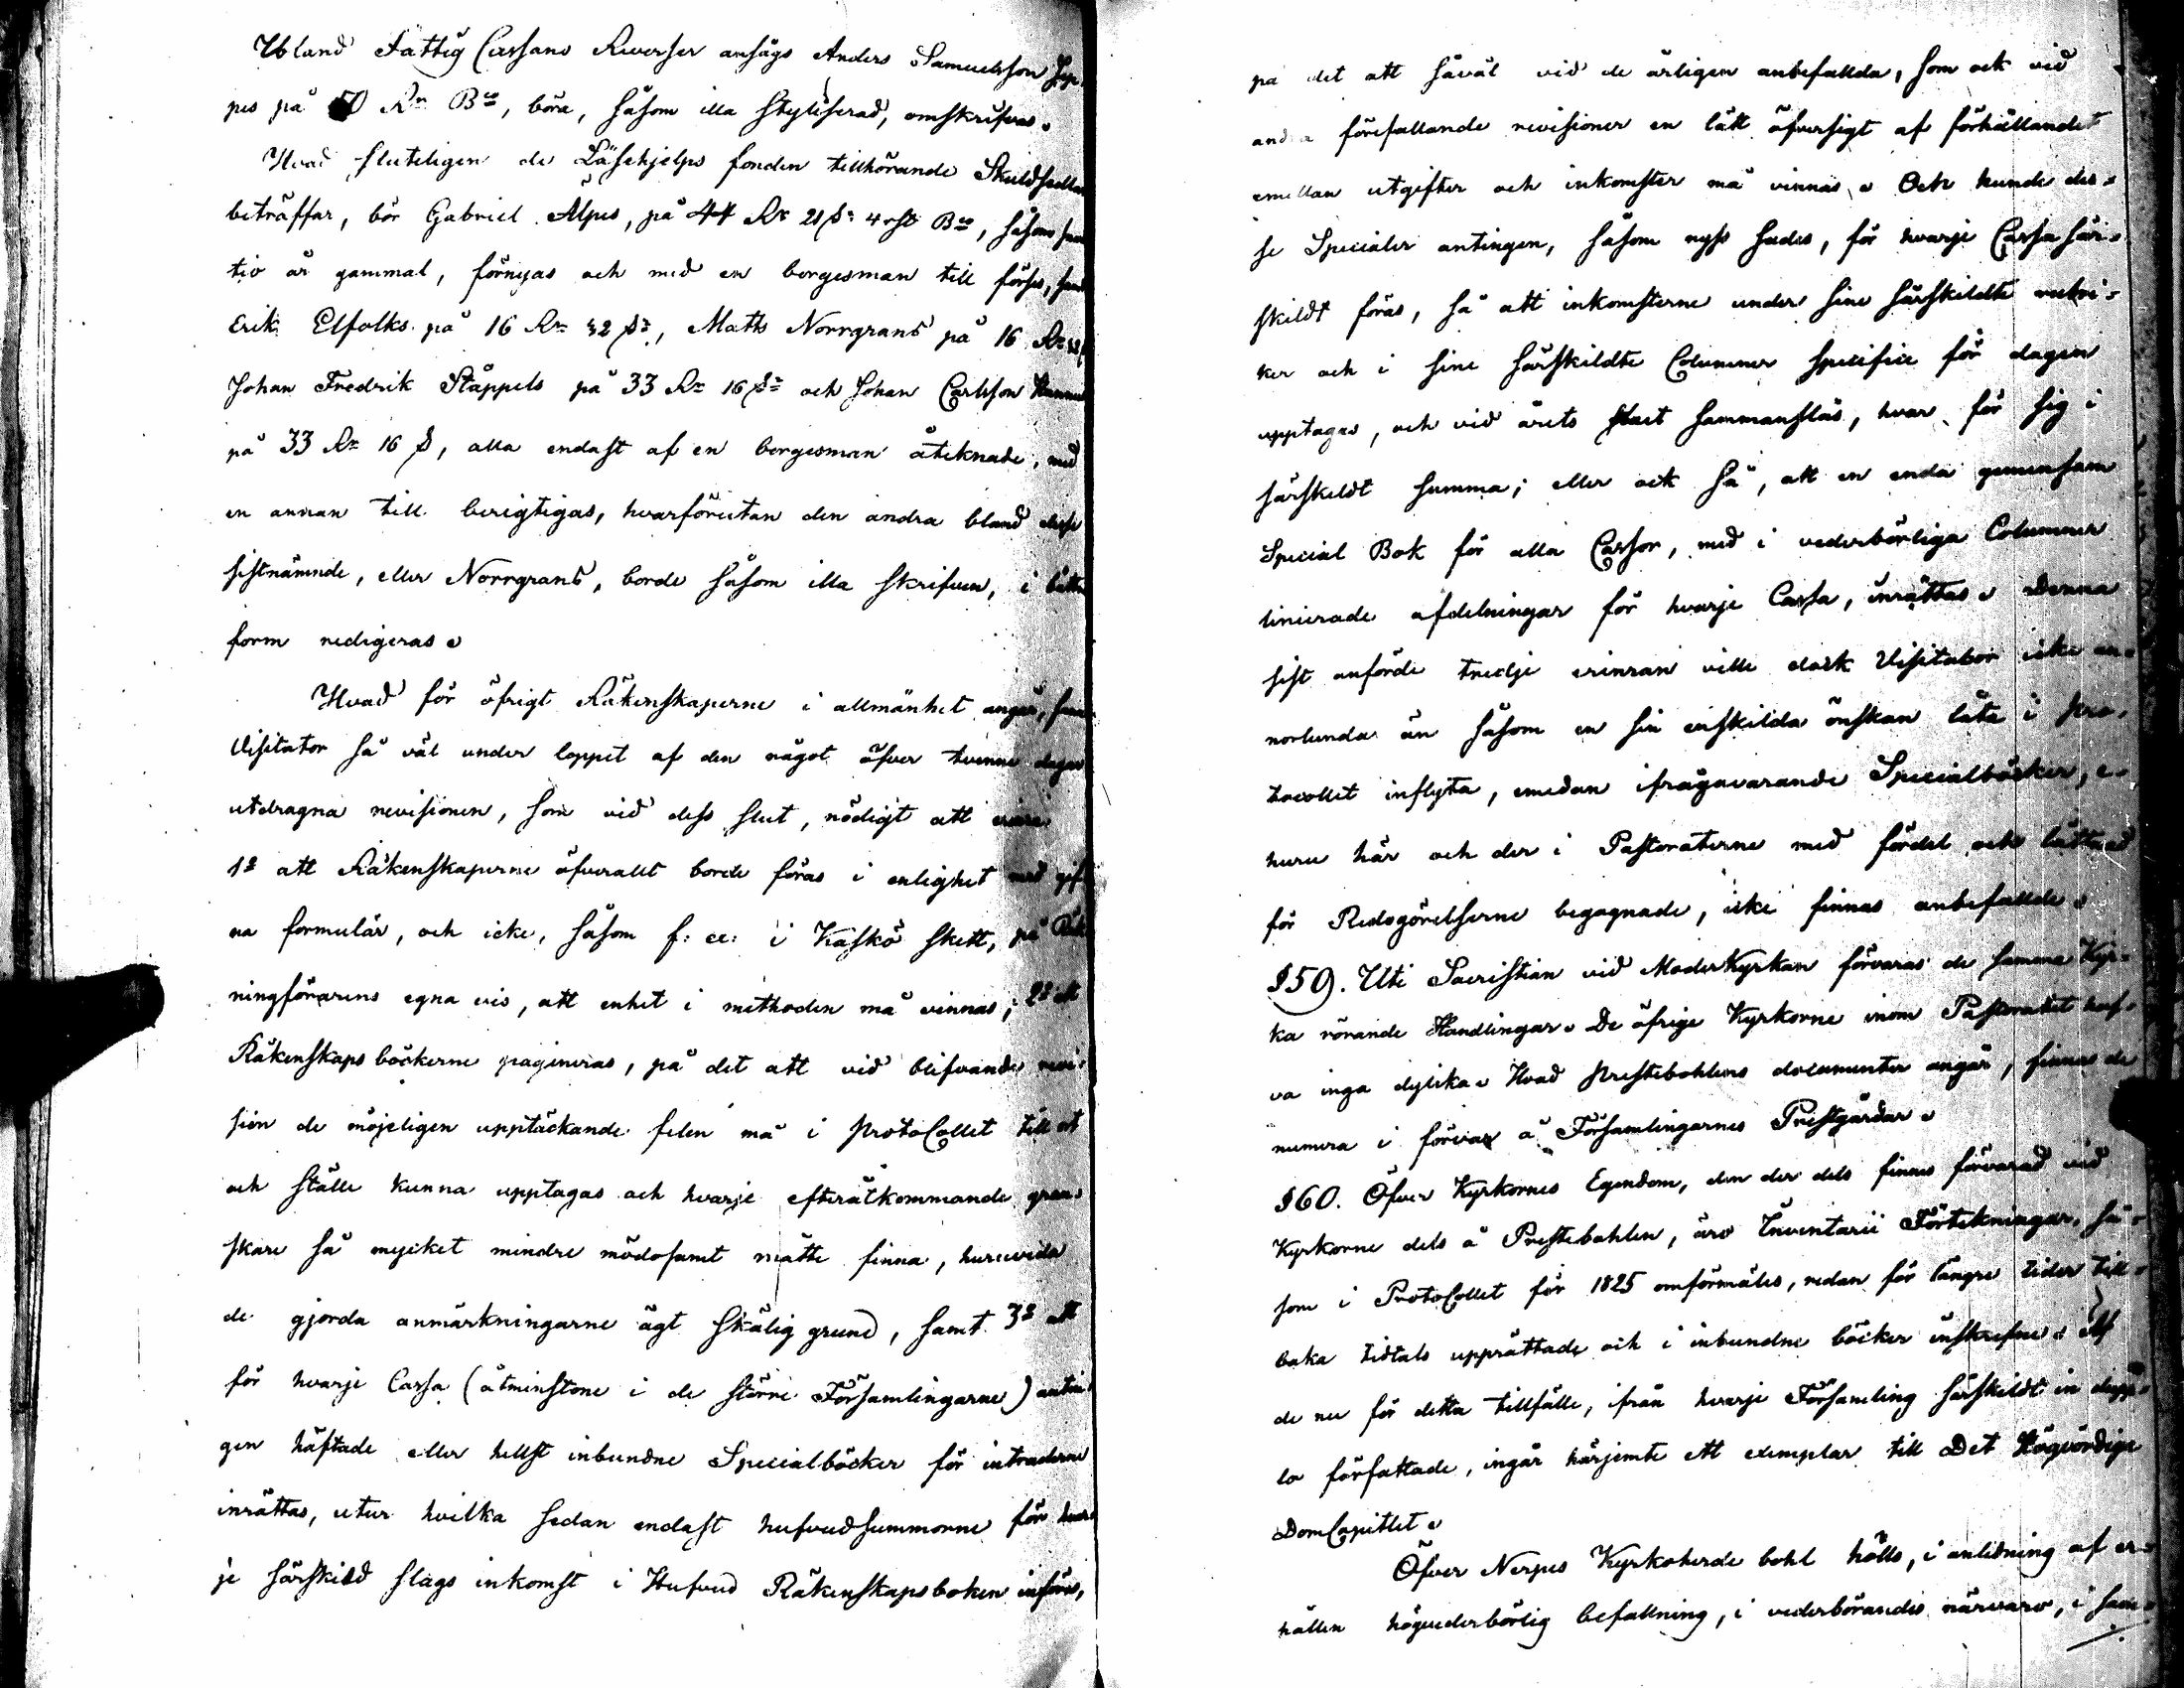 Ibland Fattig Cassans Reverser ansågs Anders Samuelsson
pes på 50 Rr Bco, böra, såsom illa styliserad, omskrifvas.
Hvad sluteligen de Läsehjelps fonden tillhörande Skuldsedlar
beträffar, bör Gabriel Alpes, på 44 Rr 21 s: 4 rst Bco, såsom
tio år gammal, förnyas och med en borgesman till förses,
Erik Elfolks på 16 Rr 32 s:, Matts Norrgrans på 16 Rr
Johan Fredrik Stäppels på 33 Rr 16 s: och Johan Carlsson
på 33 Rr 16 s, alla endast af en borgesman åteknade, med
en annan till berigtigas, hvarförutan den andra bland desse
sistnämnde, eller Norrgrans, borde såsom illa skrifven, i bättre
form redigeras.
Hvad för öfrigt Räkenskaperne i allmänhet angår, fann
Visitator så väl under loppet af den något öfver tvenne dagar
utdragna revisionen, som vid dess slut, nödigt att erinra
1o att Räkenskaperne öfverallt borde föras i enlighet med gif
na formulär, och icke, såsom f: ex: i Kaskö skett, på Räk
ningförarens egna vis, att enhet i methoden må vinnas; 2o att
Räkenskaps böckerne pagineras, på det att vid blifvande revi-
sion de möjeligen upptäckande felen må i protoCollet till ort
och ställe kunna upptagas och hvarje efteråtkommande gran-
skare så mycket mindre mödosamt måtte finna, huruvida
de gjorda anmärkningarne ägt skälig grund, samt 3o att
för hvarje Cassa (åtminstone i de större Församlingarne) antin-
gen häftade eller hellst inbundne Specialböcker för intraderne
inrättas, utur hvilka sedan endast hufvudsummorne för hvar-
je särskild slags inkomst i Hufvud Räkenskapsboken införas,
på det att såväl vid de årligen anbefallda, som ock vid
andra förefallande revisioner en lätt öfversigt af förhållandet
emellan utgifter och inkomster må vinnas. Och kunde des-
se Specialer antingen, såsom nyss sades, för hvarje Cassa sär-
skildt föras, så att inkomsterne under sine särskildte rubri-
ker och i sine särskildte Columner specifice för dagen
upptagas, och vid årets slut sammanslås, hvar för sig i
särskildt summa; eller ock så, att en enda gemensam
Special Bok för alla Cassor, med i vederbörliga Columner
linierade afdelningar för hvarje Cassa, inrättas. Denna
sist anförde tredje erinran ville dock Visitator icke an-
norlunda än såsom en sin enskilda önskan låta i pro-
tocollet inflyta, emedan ifrågavarande Specialböcker, e-
huru här och der i Pastoraterne med fördel och lättnad
för Redogörelserne begagnade, icke finnas anbefallde.
§ 59. Uti Sacristian vid Moderkyrkan förvaras de samma Kyr-
ka rörande Handlingar. De öfrige Kyrkorne inom Pastoratet haf-
va inga dylika. Hvad prestebohlens documenter angår, finnas de
numera i förvar å Församlingarnes Prestgårdar.
§ 60. Öfver Kyrkornes Egendom, den der dels finnes förvarad vid
Kyrkorne dels å Prestebohlen, äro Inventarii Förtekningar, så-
som i ProtoCollet för 1825 omförmäles, redan för längre tider till-
baka tidtals upprättade och i inbundne böcker inskrefne. Af
de nu för detta tillfälle, ifrån hvarje Församling särskildt in dupp-
lo författade, ingår härjemte ett exemplar till Det Högvördige
DomCapitlet.
Öfver Nerpes Kyrkoherde bohl hölls, i anledning af er-
hållen högvederbörlig befallning, i vederbörandes närvaro, i sam-